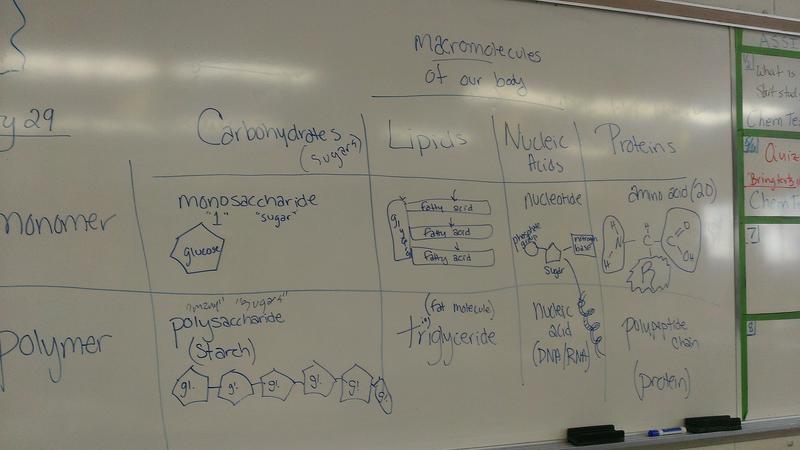 macromolecules
of our body
y 29
Carbohydrates
(sugars)
Lipids
Nucleic
Acids
Proteins
monomer
monosaccharide
"1" "sugar"
glucose
glycerol
fatty acid
fatty acid
fatty acid
nucleotide
phosphate
group
sugar
nitrogen
base
amino acid (20)
H
N
H
H
C
C
O
OH
R
polymer
"many" "sugars"
polysaccharide
(starch)
gl. gl. gl. gl. gl. gl.
(fat molecule)
triglyceride
nucleic
acid
(DNA/RNA)
polypeptide
chain
(protein)
ASSI
What is
Start stud
Chem Te
Quiz
Bring
Chem
7
8